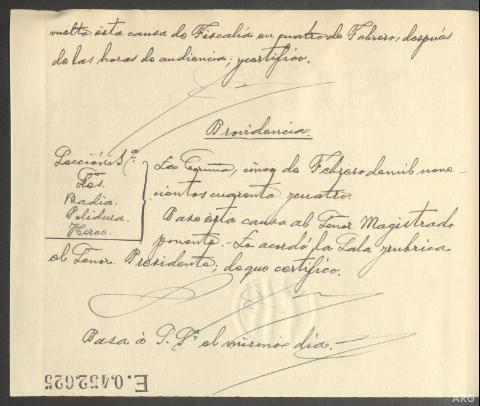 vuelta ésta causa de Fiscalía en cuatro de Febrero, después
de las horas de audiencia; y certifico.
Providencia
Sección 1ª.
Sres.
Badia.
Polidura.
La Coruña, cinco de Febrero de mil nove-
cientos cuarenta y cuatro.
Pase ésta causa al Señor Magistrado
ponente. Lo acordó la Sala y rubrica
el Señor Presidente; de que certifico.
Pasa á S. Sª el mismo día.-
E.0.452.625
ARG